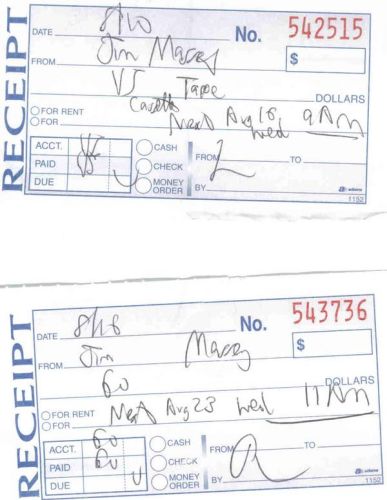 RECEIPT
DATE 8/10 No. 542515
FROM Jim Macey $
Tape DOLLARS
FOR RENT
FOR Next Aug 16 Wed 9 AM
ACCT. CASH
PAID CHECK FROM TO
DUE MONEY ORDER BY
adams
1152
RECEIPT
DATE 8/16 No. 543736
FROM Jim Macey $
60 DOLLARS
FOR RENT
FOR Next Aug 23 Wed 11 AM
ACCT. 60 CASH
PAID 60 CHECK FROM TO
DUE 0 MONEY ORDER BY
adams
1152